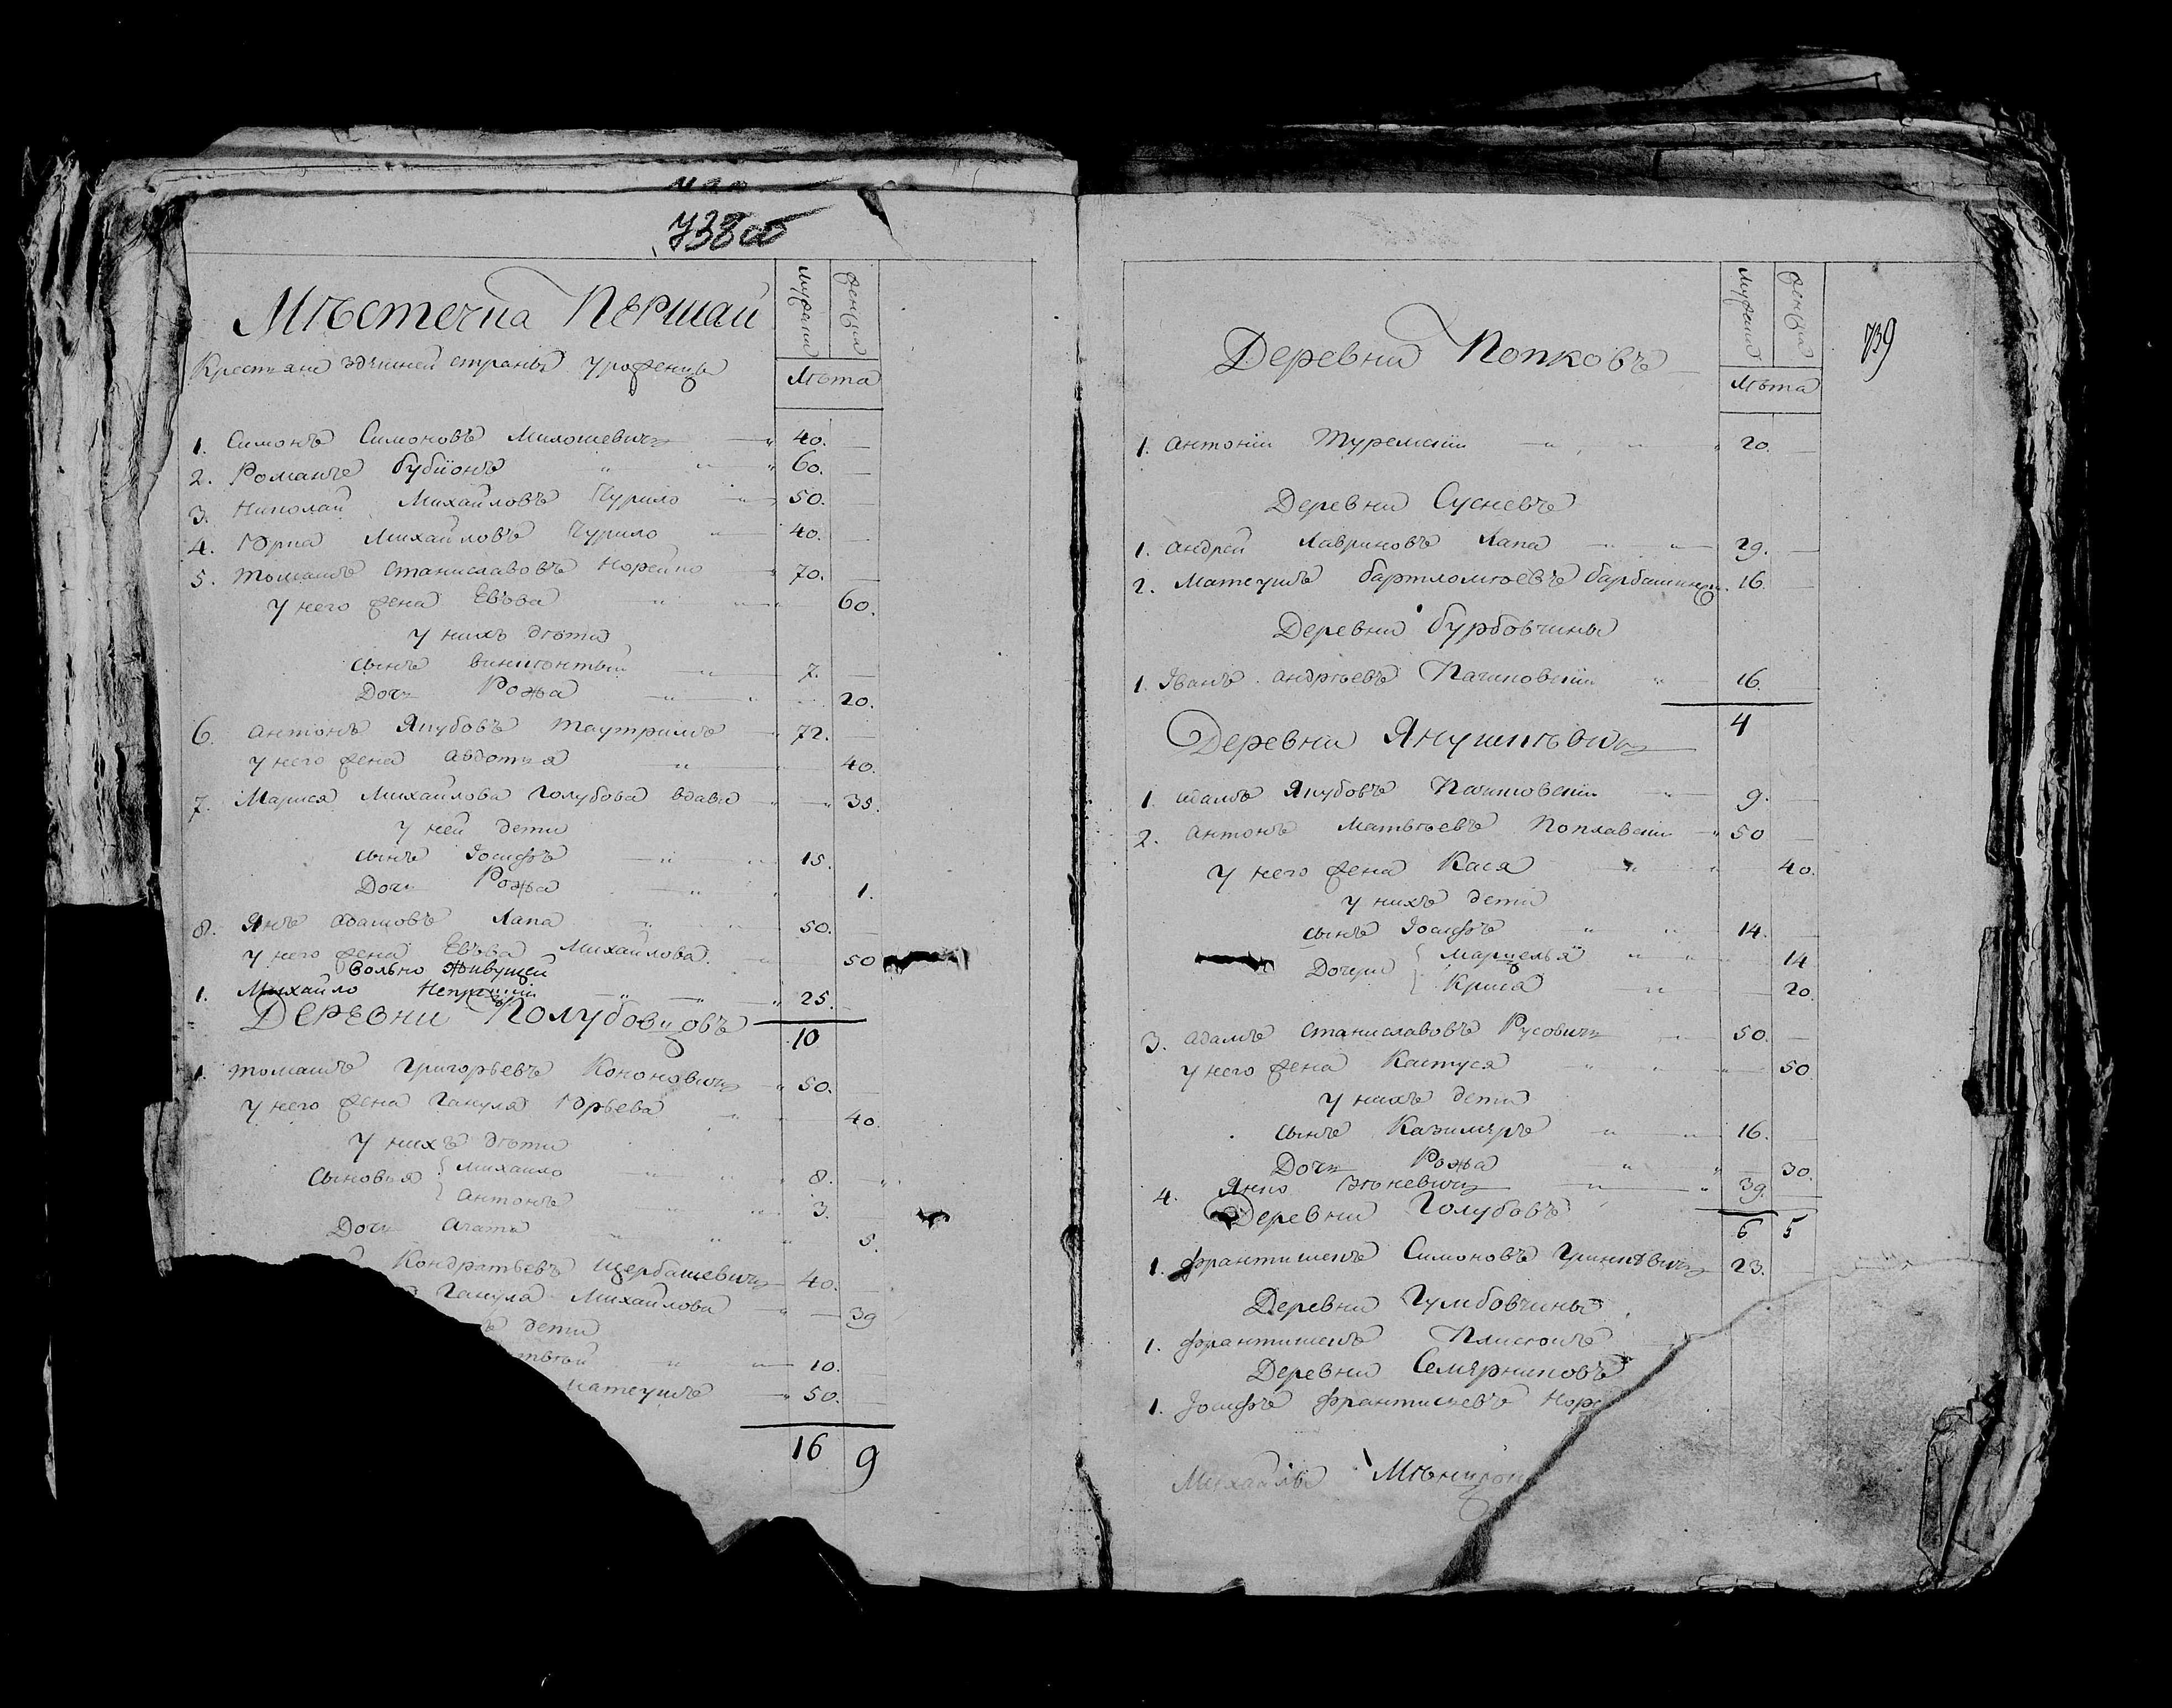 738 об
Мѣстечка Першай
мужеска
женска
Крестьяне здѣшней страны уроженцы
Лѣта
1. Симонъ Симоновъ Милошевичь 40.
2. Романъ Губiонъ 60.
3. Николай Михайловъ Чурило 50.
4. Юрка Михайловъ Чурило 40.
5. Томашъ Станиславовъ Норейко 70.
у него жена Евъва 60.
у нихъ дѣти
сынъ Винцентый 7.
Дочь Рожа 20.
6. Антонъ Якубовъ 72.
у него жена Авдотья 40.
7. Марися Михайлова Голубова вдава 35.
у ней дети
сынъ Iосифъ 15.
Дочь Рожа 1.
8. Янъ Адамовъ Лапа 50.
у него жена Евъва Михайлова 50
Вольно живущей
1. Михайло 25.
Деревни Полубовцовъ
10
1. Томашъ Григорьевъ Кононовичь 50.
у него жена Гануля Юрьева 40
у нихъ дѣти
Сыновья Михайло 8.
Антонъ 3.
Дочь Агата 5.
Кондратьевъ Щербацевичь 40.
Ганула Михайлова 39
дети
10.
Матеушъ 50.
16 9
739
мужеска
женска
Деревни Попковъ
Лѣта
1. Антонiй Туремскiй 20.
Деревни Сусневъ
1. Андрей Лавриновъ Лапа 29.
2. Матеушъ Бартломѣевъ 16.
Деревни Гурбовчины
1. Iванъ Андрѣевъ 16.
4
Деревни Янушкѣвичь
1. Адамъ Якубовъ 9.
2. Антонъ Матвѣевъ Поплавскiй 50
у него жена Кася 40.
у нихъ дети
сынъ Iосифъ 14.
Дочери Марцелья 14
Крися 20.
3. Адамъ Станиславовъ Русовичь 50.
у него жена Кастуся 50
у нихъ дети
сынъ Казимиръ 16.
Дочь Рожа 30.
4. Янко Зѣневичь 39.
Деревни Голубовъ
6 5
1. Франтишекъ Симоновъ Гринкѣвичь 23.
Деревни Гумбовчины
1. Франтишекъ
Деревни Семѣрниковъ
1. Iосифъ Франтишевъ
Михайла